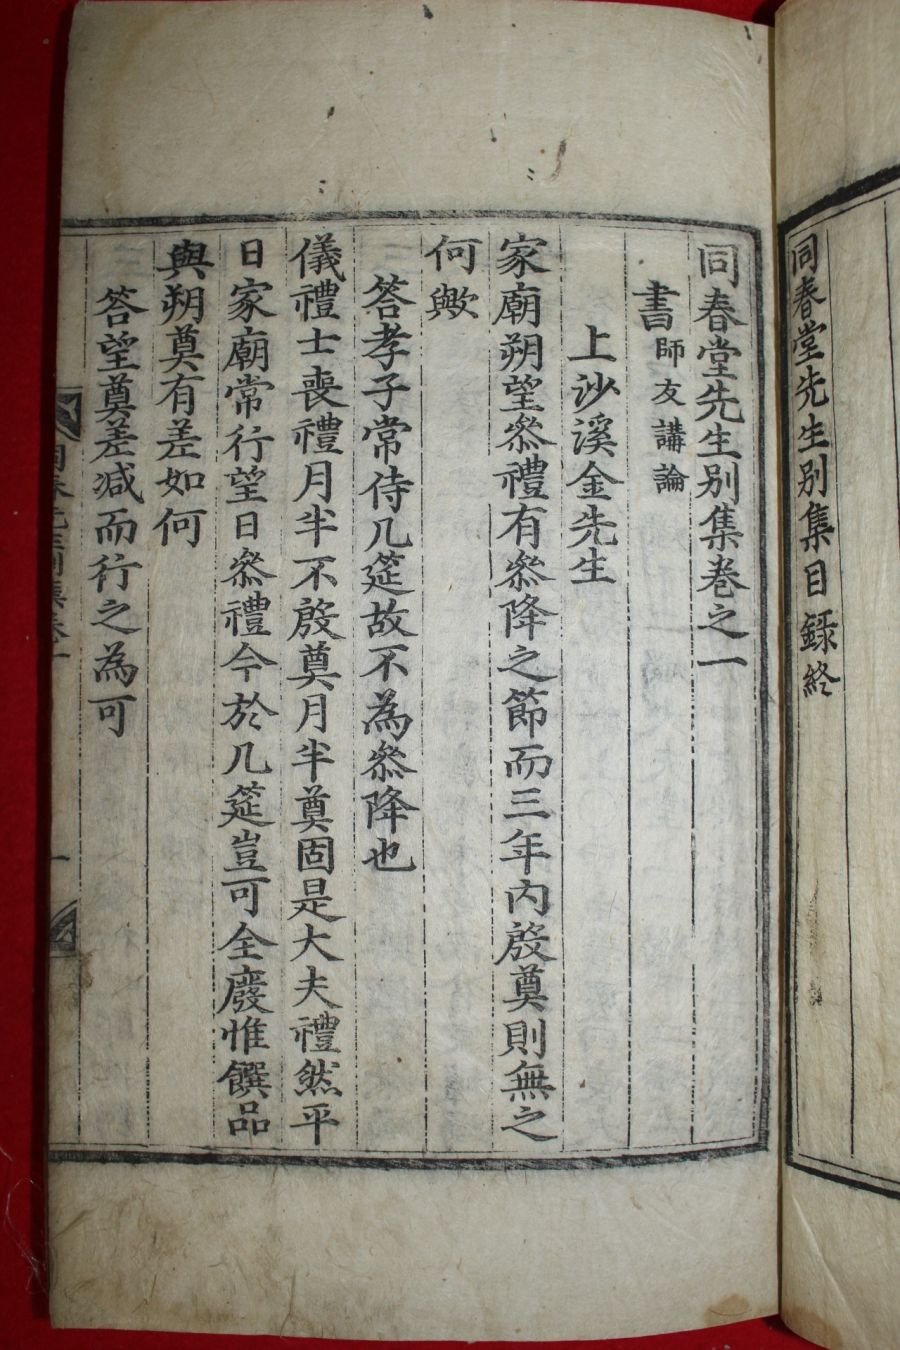 同春堂先生別集目録終
同春堂先生别集卷之一
書師友講論
上沙溪金先生
家廟朔望叅禮有叅降之節而三年内殷奠則無之
何歟
答孝子常侍几筵故不為叅降也
儀禮士喪禮月半不殷奠月半奠固是大夫禮然平
日家廟常行望日叅禮今於几筵豈可全廢惟饌品
與朔奠有差如何
答望奠差减而行之為可